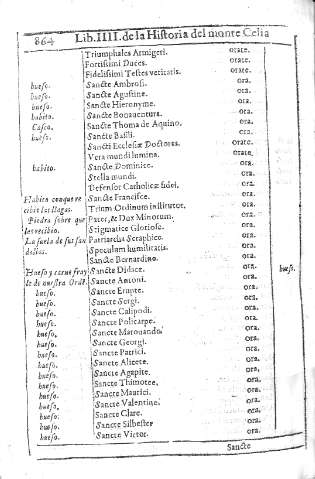 864 Lib. IIII. de la Historia del monte Celia
Triumphales Armigeri. orate.
Fortissimi Duces. orate.
Fidelissimi Testes veritatis. orate.
hueso. Sancte Ambrosi. ora.
hueso. Sancte Agustine. ora.
hueso. Sancte Hieronyme. ora.
habito. Sancte Bonauentura. ora.
Casco. Sancte Thoma de Aquino. ora.
hueso. Sancte Basili. ora.
Sancti Ecclesiæ Doctores. orate.
Vera mundi lumina. orate.
habito. Sancte Dominice. ora.
Stella mundi. ora.
Defensor Catholicæ fidei. ora.
Habito con que re Sancte Francisce. ora.
cibio las llagas. Trium Ordinum institutor. ora.
Piedra sobre que Pater, & Dux Minorum. ora.
les recibio. Stigmatice Gloriose. ora.
La suela de sus san Patriarcha Seraphice. ora.
dalias. Speculum humilitatis. ora.
Sancte Bernardino. ora.
Hueso y carne fray Sancte Didace. ora. hueso.
le de nuestra Ordē. Sancte Antoni. ora.
hueso. Sancte ora.
hueso. Sancte Sergi. ora.
hueso. Sancte Calipodi. ora.
hueso. Sancte Policarpe. ora.
hueso. Sancte Marouando. ora.
hueso. Sancte Georgi. ora.
hueso. Sancte Patrici. ora.
hueso. Sancte ora.
hueso. Sancte Agapite. ora.
hueso. Sancte Thimotee. ora.
hueso. Sancte Maurici. ora.
hueso. Sancte Valentine. ora.
hueso. Sancte Clare. ora.
hueso. Sancte Silbester ora.
hueso. Sancte Victor. ora.
Sancte